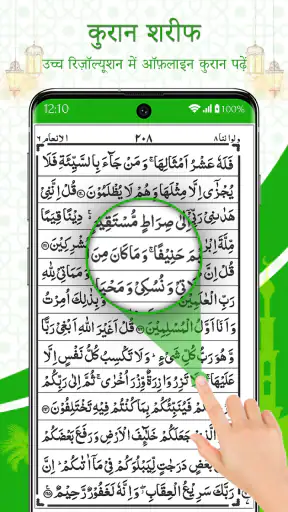 कुरान शरीफ
उच्च रिज़ॉल्यूशन में ऑफ़लाइन कुरान पढ़ें
12:10 100%
ولواننا٨ ٢٠٨ الانعام٦
فَلَهٗ عَشْرُ اَمْثَالِهَا ۚ وَمَنْ جَآءَ بِالسَّيِّئَةِ فَلَا
يُجْزٰٓى اِلَّا مِثْلَهَا وَهُمْ لَا يُظْلَمُوْنَ ۝ قُلْ اِنَّنِيْ
هَدٰىنِيْ اِلٰى صِرَاطٍ مُّسْتَقِيْمٍ ۚ دِيْنًا قِيَمًا
مِّلَّةَ حَنِيْفًا ۚ وَمَا كَانَ مِنَ
قُلْ اِنَّ وَنُسُكِيْ وَمَحْيَا وَمَمَاتِيْ لِلّٰهِ
رَبِّ الْعٰلَمِيْنَ ۝ وَبِذٰلِكَ اُمِرْتُ
وَاَنَا اَوَّلُ الْمُسْلِمِيْنَ ۝ قُلْ اَغَيْرَ اللّٰهِ اَبْغِيْ رَبًّا
وَّهُوَ رَبُّ كُلِّ شَيْءٍ ۚ وَلَا تَكْسِبُ كُلُّ نَفْسٍ اِلَّا
عَلَيْهَا ۚ وَلَا تَزِرُ وَازِرَةٌ وِّزْرَ اُخْرٰى ۚ ثُمَّ اِلٰى رَبِّكُمْ
مَّرْجِعُكُمْ فَيُنَبِّئُكُمْ بِمَا كُنْتُمْ فِيْهِ تَخْتَلِفُوْنَ ۝
وَهُوَ الَّذِيْ جَعَلَكُمْ خَلٰٓئِفَ الْاَرْضِ وَرَفَعَ بَعْضَكُمْ
فَوْقَ بَعْضٍ دَرَجٰتٍ لِّيَبْلُوَكُمْ فِيْ مَآ اٰتٰىكُمْ ۚ اِنَّ
رَبَّكَ سَرِيْعُ الْعِقَابِ ۖ وَاِنَّهٗ لَغَفُوْرٌ رَّحِيْمٌ ۝